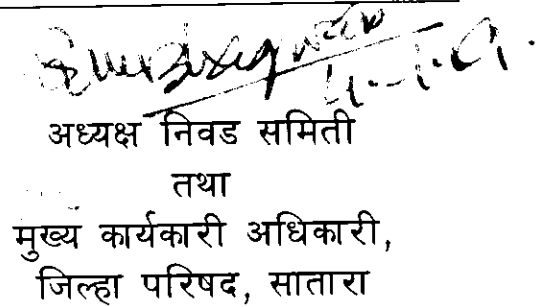 अध्यक्ष निवड समिती
तथा
मुख्य कार्यकारी अधिकारी,
जिल्हा परिषद, सातारा